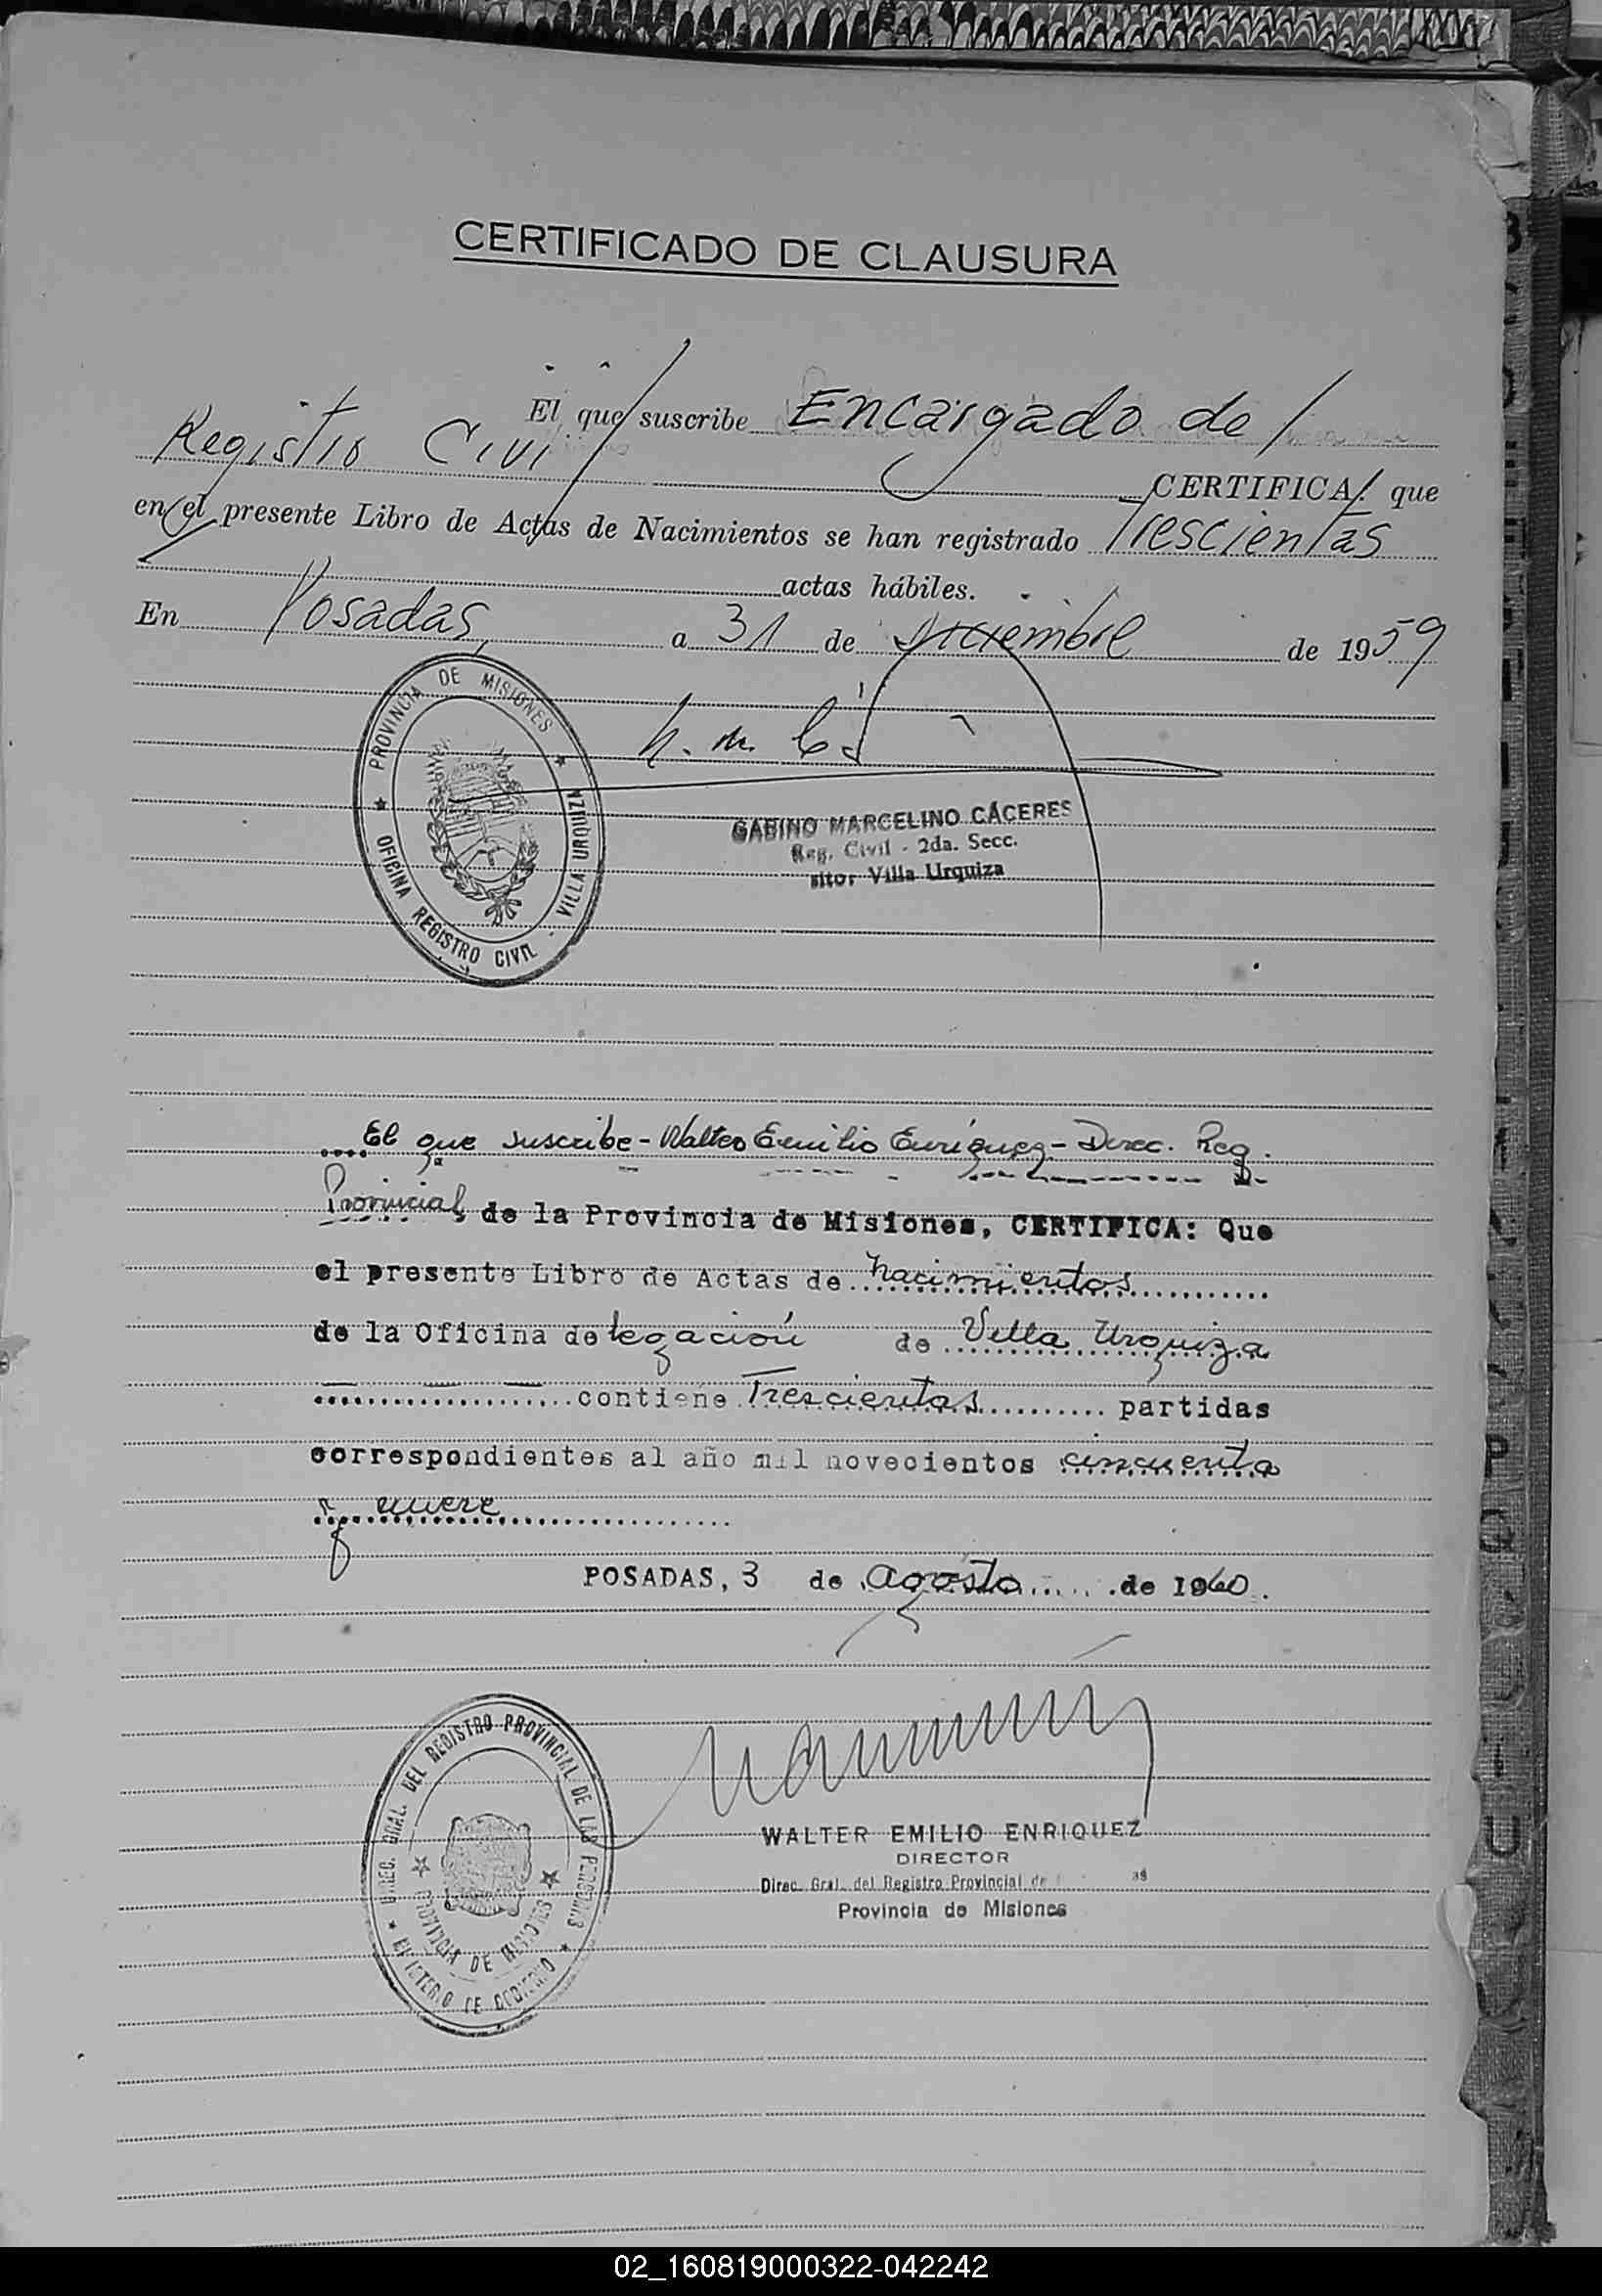 CERTIFICADO DE CLAUSURA
El que suscribe Encargado del
Registro Civil CERTIFICA: que
en el presente Libro de Actas de Nacimientos se han registrado Trescientas
actas hábiles.
En Posadas, a 31 de Diciembre de 1959
PROVINCIA DE MISIONES
OFICINA REGISTRO CIVIL - VILLA URQUIZA
GABINO MARCELINO CÁCERES
Reg. Civil - 2da. Secc.
Villa Urquiza
El que suscribe - Walter Emilio Enríquez - Direc. Reg.
Provincial, de la Provincia de Misiones, CERTIFICA: Que
el presente Libro de Actas de nacimientos
de la Oficina delegación de Villa Urquiza
contiene Trescientas partidas
correspondientes al año mil novecientos cincuenta
y nueve
POSADAS, 3 de agosto de 1960.
DIREC. GRAL. DEL REGISTRO PROVINCIAL DE LAS PERSONAS
PROVINCIA DE MISIONES
DE GOBIERNO
WALTER EMILIO ENRIQUEZ
DIRECTOR
Direc. Gral. del Registro Provincial de
Provincia de Misiones
02_160819000322-042242